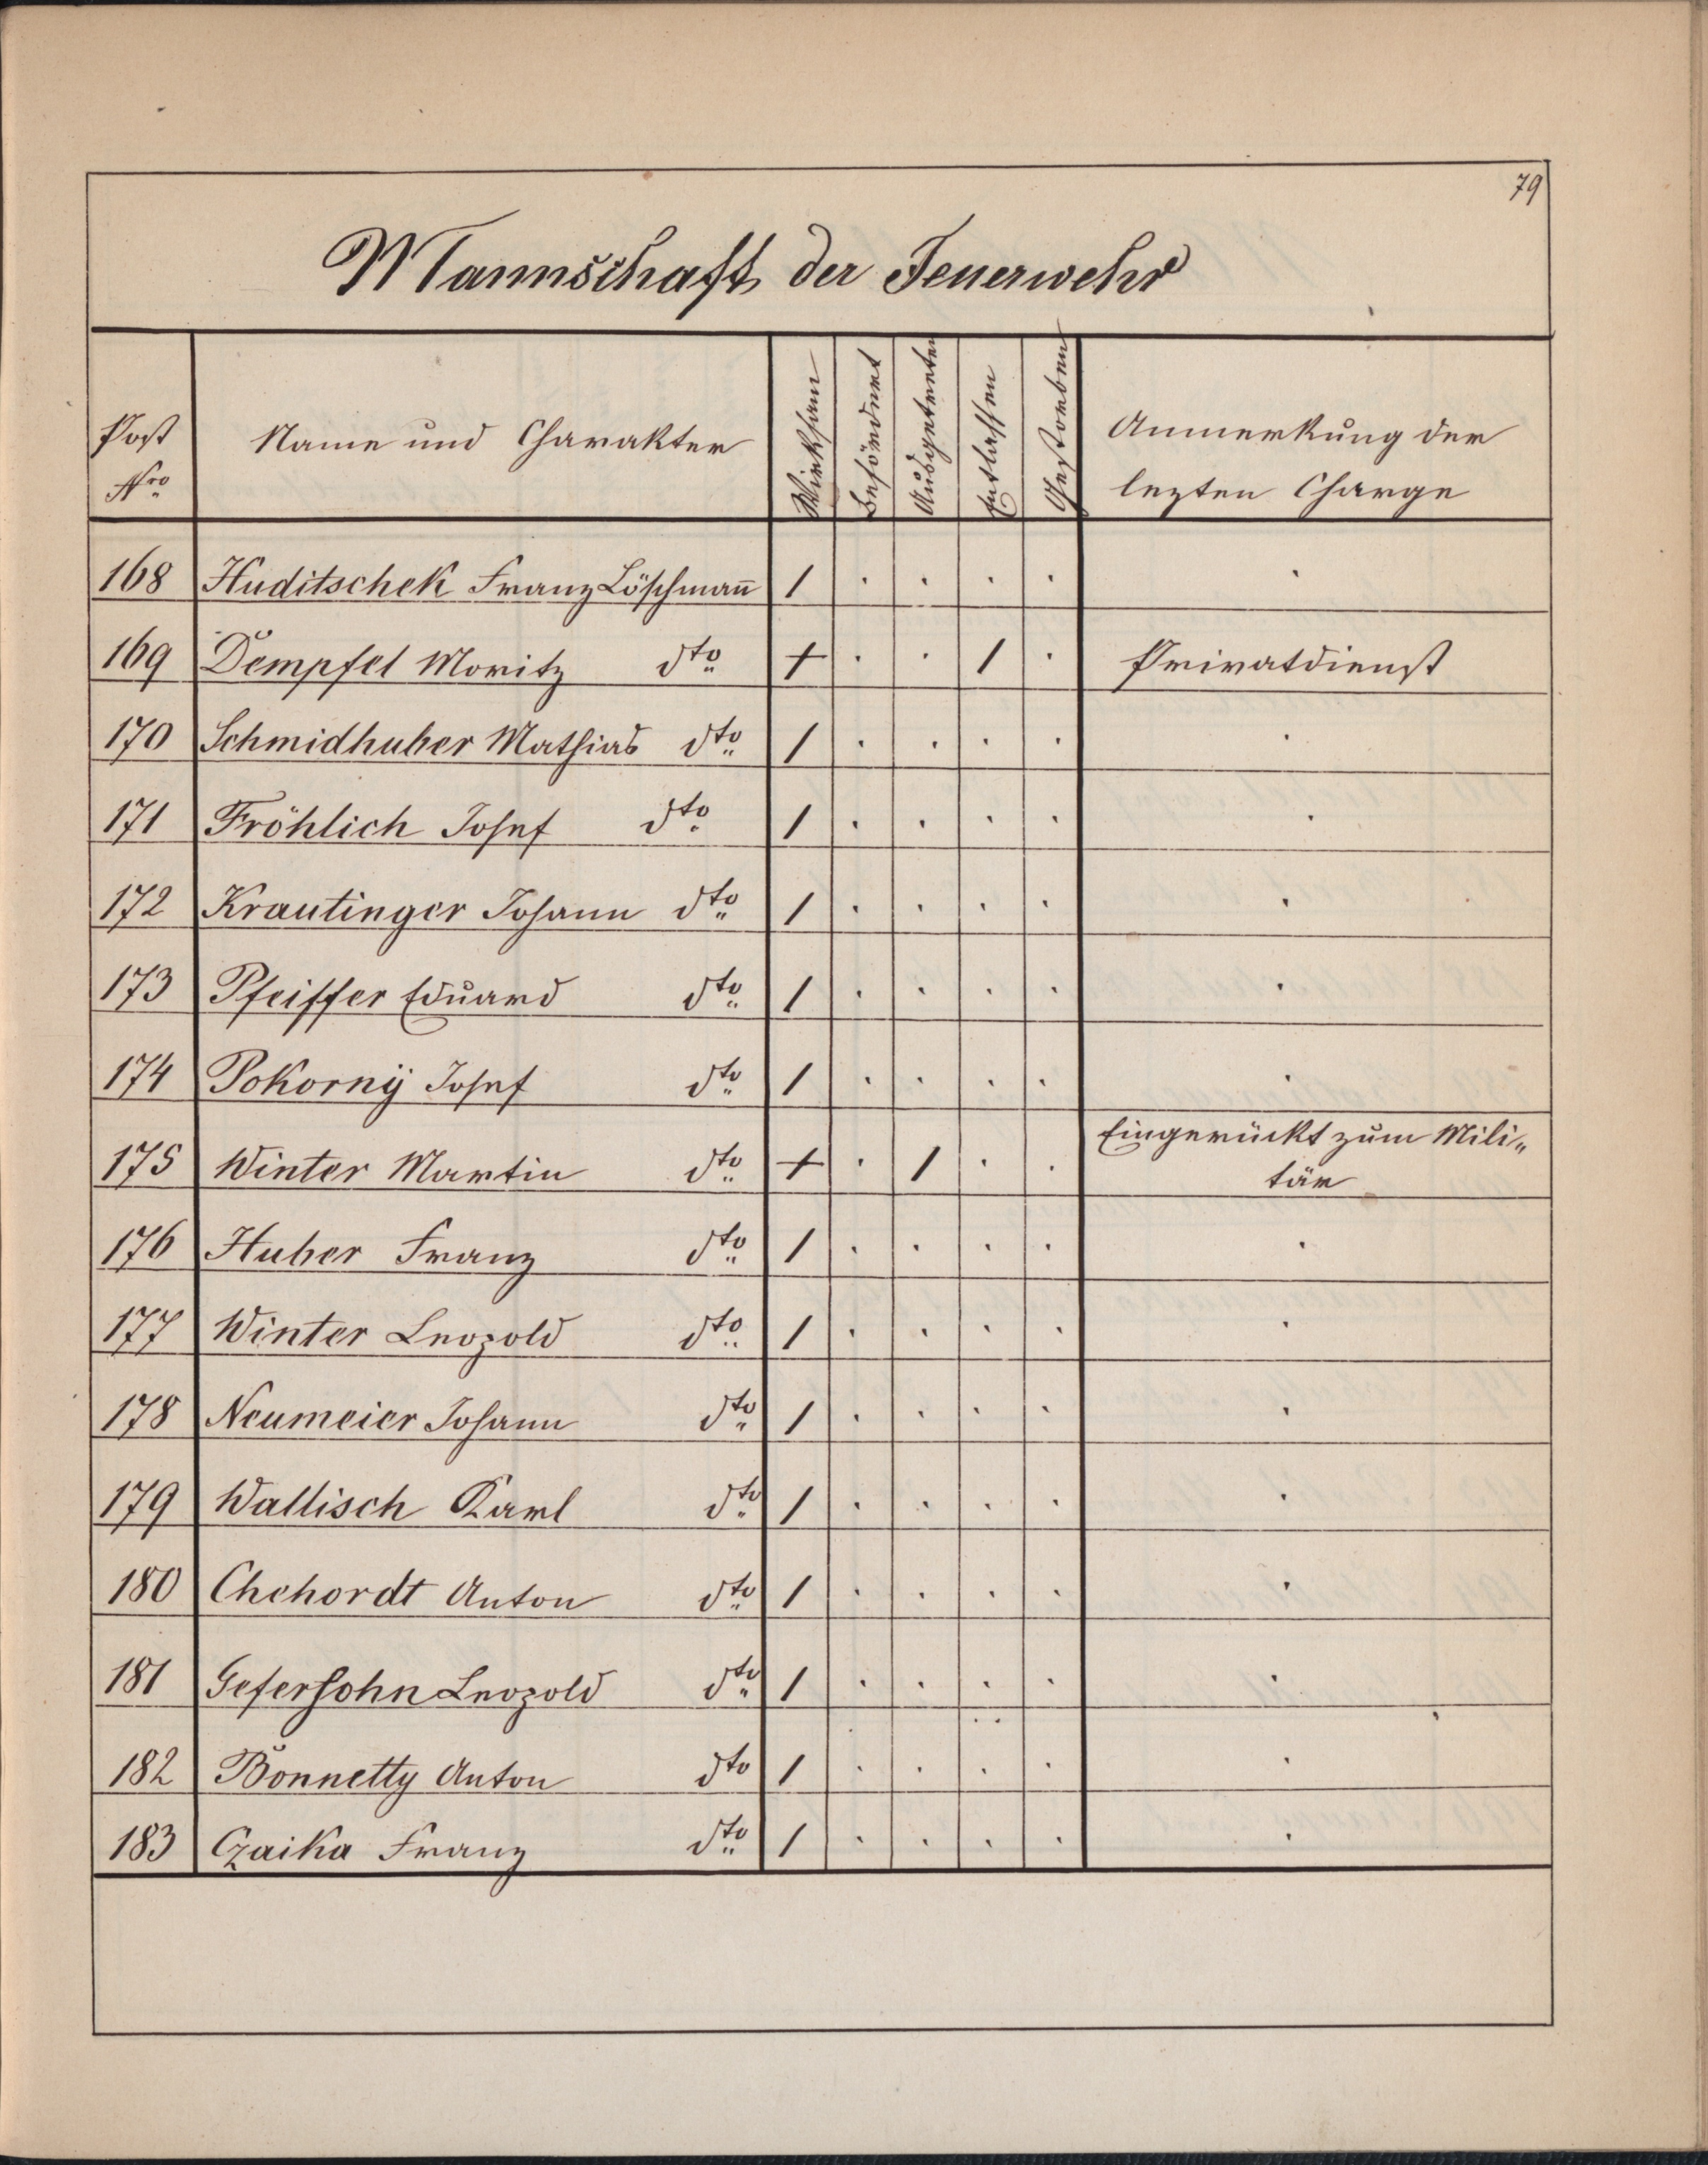 79
Mannschaft der Feuerwehr
Post Nro Name und Charakter Wirksam Befördert Ausgetreten Entlassen Gestorben Anmerkung der lezten Charge
168 Huditschek Franz Löschman̄ 1 . . . . .
169 Dempfel Moritz dto + . . 1 . Privatdienst
170 Schmidhuber Mathias dto 1 . . . . .
171 Fröhlich Josef dto 1 . . . . .
172 Krautinger Johann dto 1 . . . . .
173 Pfeiffer Eduard dto 1 . . . . .
174 Pokornÿ Josef dto 1 . . . . .
175 Winter Martin dto + . 1 . . Eingerückt zum Mili„
tär
176 Huber Franz dto 1 . . . . .
177 Winter Leopold dto 1 . . . . .
178 Neumeier Johann dto 1 . . . . .
179 Wallisch Karl dto 1 . . . . .
180 Chehordt Anton dto 1 . . . . .
181 Gefersohn Leopold dto 1 . . . . .
182 Bonnetty Anton dto 1 . . . . .
183 Czaika Franz dto 1 . . . . .